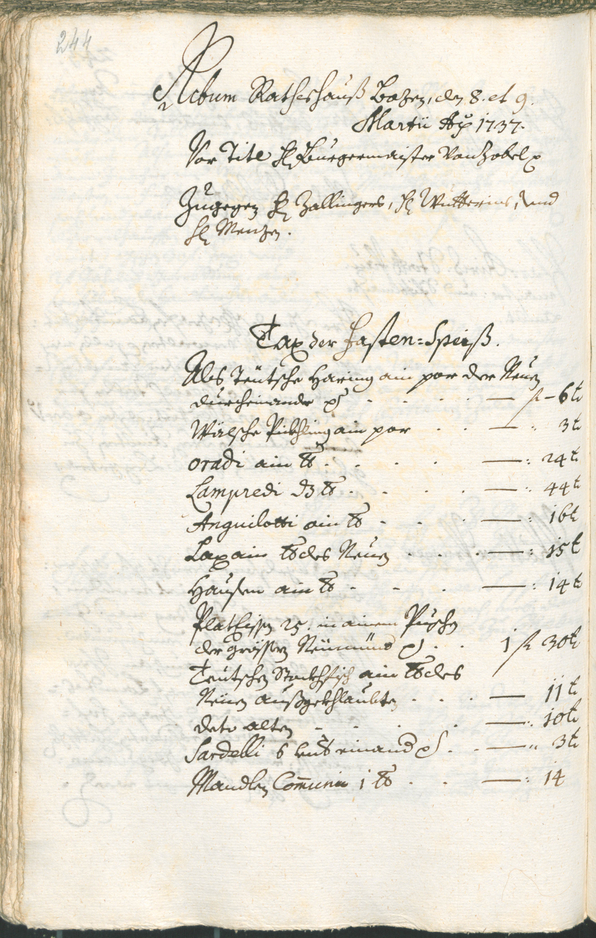 244
Actum Rathshauß Bozen, den 8. et 9.
Martii Aō 1737.
Vor Titl H: Burgermaister von Zobel
Zugegen H: Zallinger, H: Wütterin, und
H: Menzen.
Tax der Fasten-Speiß.
Als Teütsche Haring ain par der Neuen
durcheinander – f – 6 k
Wälsche Pückhling ain par – 3 k
oradi ain ℔ – 24 k
Lampredi ℔ – 44 k
Anguilotti ain ℔ – 16 k
Lax ain ℔ des Neuen – 15 k
Hausen ain ℔ – 14 k
Platteisen 25. in ainem
der grössern 1 f 30 k
Teutschen Stockhfisch ain ℔ des
Neuen außgekhlaubten – 11 k
deto alten – 10 k
Sardelli 6 – 3 k
Mandlen Comuni 1 ℔ – 14